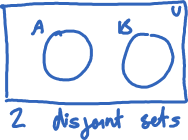 U
A B
2 disjoint sets